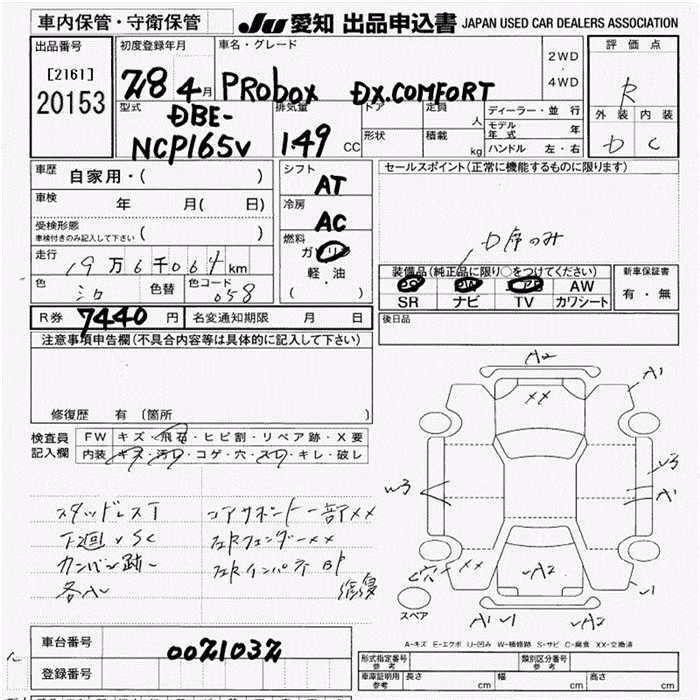 車内保管・守衛保管
JU 愛知 出品申込書 JAPAN USED CAR DEALERS ASSOCIATION
出品番号
[2161]
20153
初度登録年月
28 4月
車名・グレード
PRobox DX.COMFORT
2WD
・
4WD
評価点
R
外装 内装
D C
型式
DBE-
NCP165V
排気量
149 CC
ドア 定員 人
形状 積載 kg
ディーラー・並行
モデル年式 年
ハンドル 左・右
車歴
自家用・( )
車検 年 月( 日)
受検形態
車検付きのみ記入して下さい ( )
走行
19万6千064km
色 シロ 色替 色コード 058
シフト
AT
冷房
AC
燃料
ガソリン
軽・油
( )
セールスポイント(正常に機能するものに限ります)
D席のみ
装備品(純正品に限り○をつけてください)
PS PW エアB AW
SR ナビ TV カワシート
新車保証書
有・無
R券 7440 円 名変通知期限 月 日
後日品
注意事項申告欄(不具合内容等は具体的に記入して下さい)
修復歴 有 〔箇所 〕
検査員
記入欄
FW キズ・飛石・ヒビ割・リペア跡・X要
内装 キズ・汚れ・コゲ・穴・スレ・キレ・破レ
スタッドレスT
下廻りSC
カンバン跡〜
コアサポート一部XX
A2
XX
A1
W3
W3
A1
XX
A2
U1
A1 U1
A2
スペア
A-キズ E-エクボ U-凹み W-補修跡 S-サビ C-腐食 XX-交換済
車台番号
0021032
登録番号
形式指定番号
参考
類別区分番号
参考
車庫証明用
参考
長さ cm 幅 cm 高さ cm